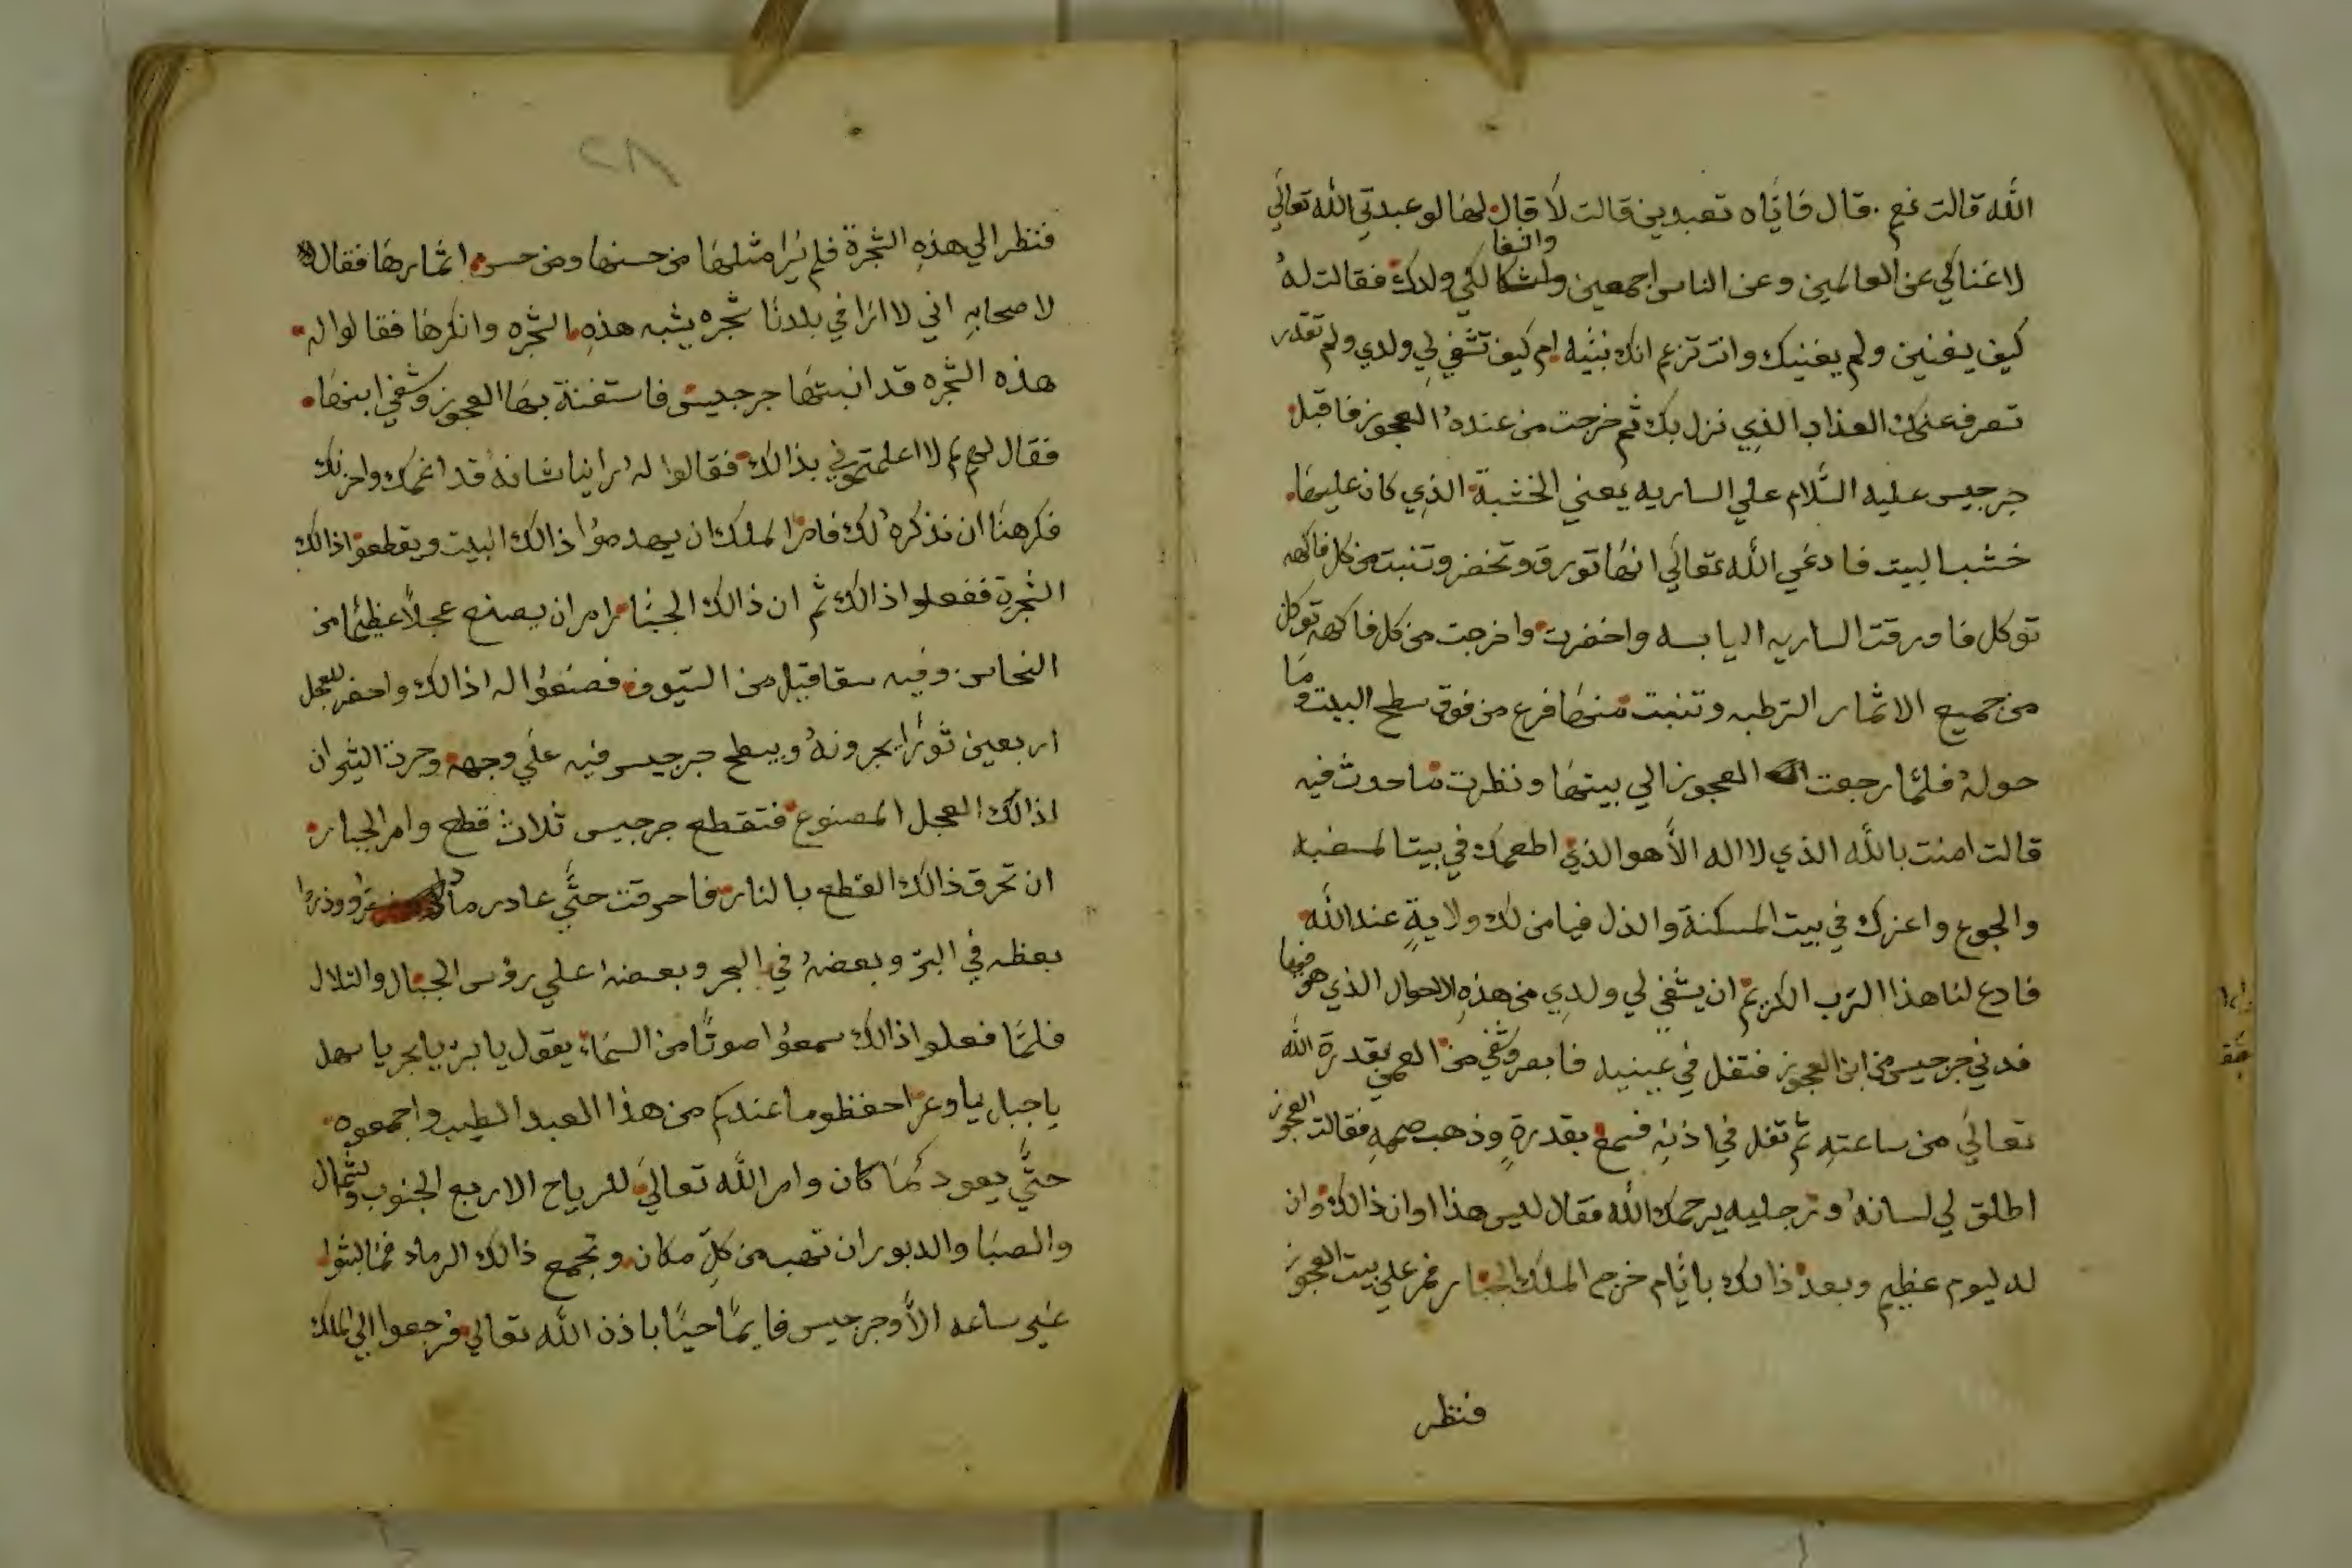 الله قالت نعم . قال فاياه تعبدين قالت لا قال لها لو عبدتي الله تعالي
لاغناكي عن العالمين وعن الناس اجمعين والشفا لكي ولدك فقالت له
كيف يغنين ولم يغنيك وانت تزعم انك نبيه ام كيف تشفي لي ولدي ولم تقدر
تصرف عنك العذاب الذي نزل بك ثم خرجت من عنده العجوز فاقبل
جرجيس عليه السلام علي الساريه يعني الخشبة الذي كان عليها
خشب البيت فادعي الله تعالي انها تورق وتخضر وتنبت من كل فاكهه
توكل فاورقت الساريه اليابسه واخضرت واخرجت من كل فاكهه توكل
من جميع الاثمار الرطبه وتنبت منها فرع من فوق سطح البيت وما
حوله فلما رجعت العجوز الي بيتها ونظرت ما حدث فيه
قالت امنت بالله الذي لا اله الا هو الذي اطعمك في بيت المسغبه
والجوع واعزك في بيت المسكنة والذل فيا من لك ولاية عند الله
فادع لنا هذا الرب الكريم ان يشفي لي ولدي من هذه الاحوال الذي هو فيها
فدني جرجيس من ابن العجوز فتفل في عينيه فابصر وشفي من العمي بقدرة الله
تعالي من ساعته ثم تفل في اذنه فسمع بقدرة وذهب صممه فقالت العجوز
اطلق لي لسانه ورجليه يرحمك الله فقال ليس هذا اوان ذالك وان
له ليوم عظيم وبعد ذالك بايام خرج الملك الجبار فمر علي بيت العجوز
فنظر
٢٨
فنظر الي هذه الشجرة فلم يرا مثلها من حسنها ومن حسن اثمارها فقال
لاصحابه اني لا ارا في بلدنا شجره يشبه هذه الشجره وانكرها فقالوا له
هذه الشجره قد انبتها جرجيس فاستغنة بها العجوز وشفي ابنها
فقال لهم لم لا اعلمتموني بذالك فقالوا له راينا شانه قد اغمك واحزنك
فكرهنا ان نذكره لك فامر الملك ان يهدموا ذالك البيت ويقطعوا ذالك
الشجرة ففعلوا ذالك ثم ان ذالك الجبار امر ان يصنع عجلا عظيما من
النحاس وفيه من السيوف فصنعوا له ذالك واحضر للعجل
اربعين ثورا يجرونه ويبطح جرجيس فيه علي وجهه وجرة الثيران
اذالك العجل المصنوع فتقطع جرجيس ثلاث قطع وامر الجبار
ان تحرق ذالك القطع بالنار فاحرقت حتي عاد رمادا وذروا
بعظه في البر وبعضه في البحر وبعضه اعلي رؤس الجبال والتلال
فلما فعلوا ذالك سمعوا صوتا من السماء يقول يا بر يا بحر يا سهل
يا جبل يا وعر احفظو ما عندكم من هذا العبد الطيب واجمعوه
حتي يعود كما كان وامر الله تعالي للرياح الاربع الجنوب وشمال
والصبا والدبور ان تهب من كل مكان وتجمع ذالك الرماد فما لبثوا
غير ساعه الا وجرجيس قايما حيا باذن الله تعالي فرجعوا الي الملك